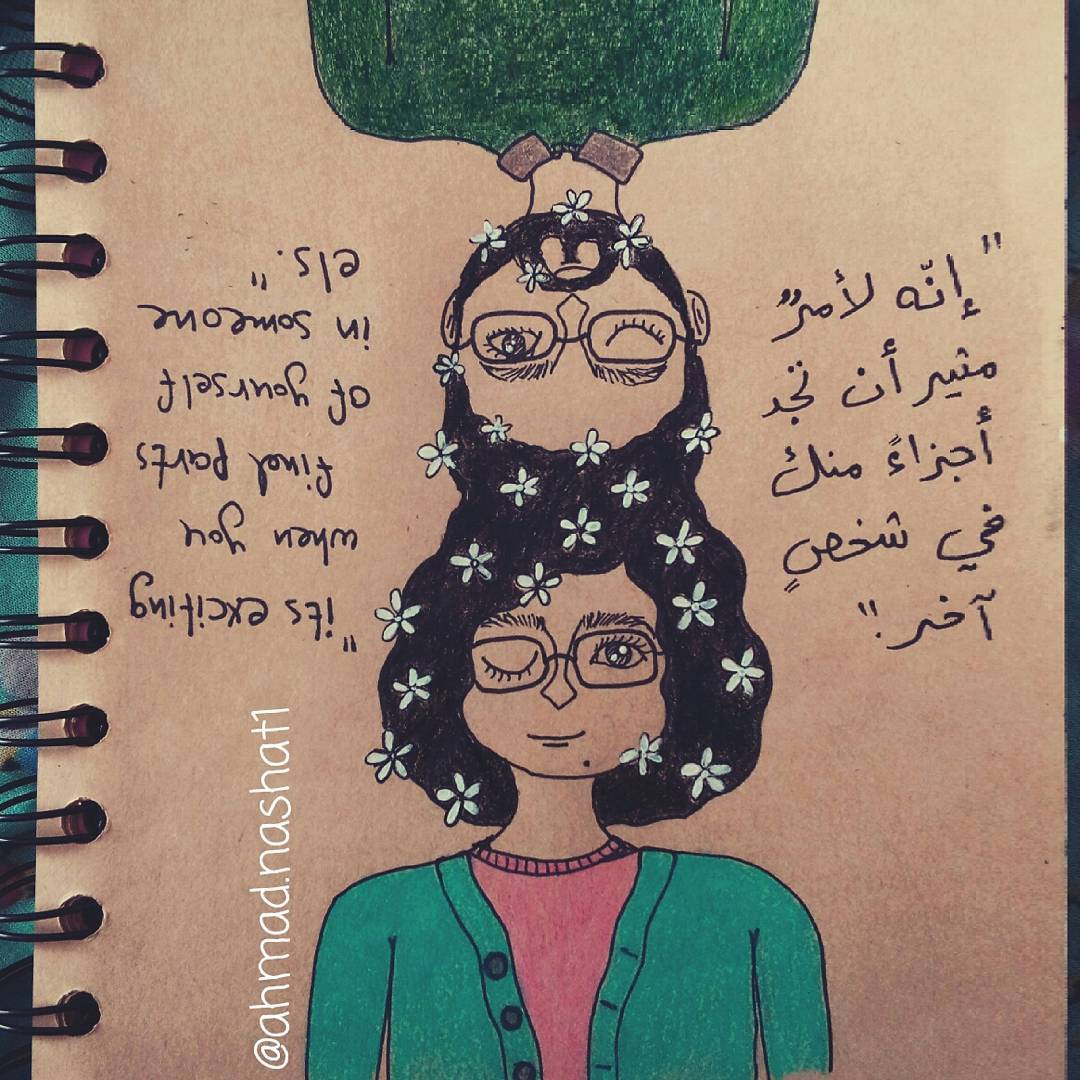 " إنّه لأمرٌ
مثير أن تجد
أجزاءً منك
في شخصٍ
آخر."
"its exciting
when you
find parts
of yourself
in someone
els."
@ahmad.nashat1